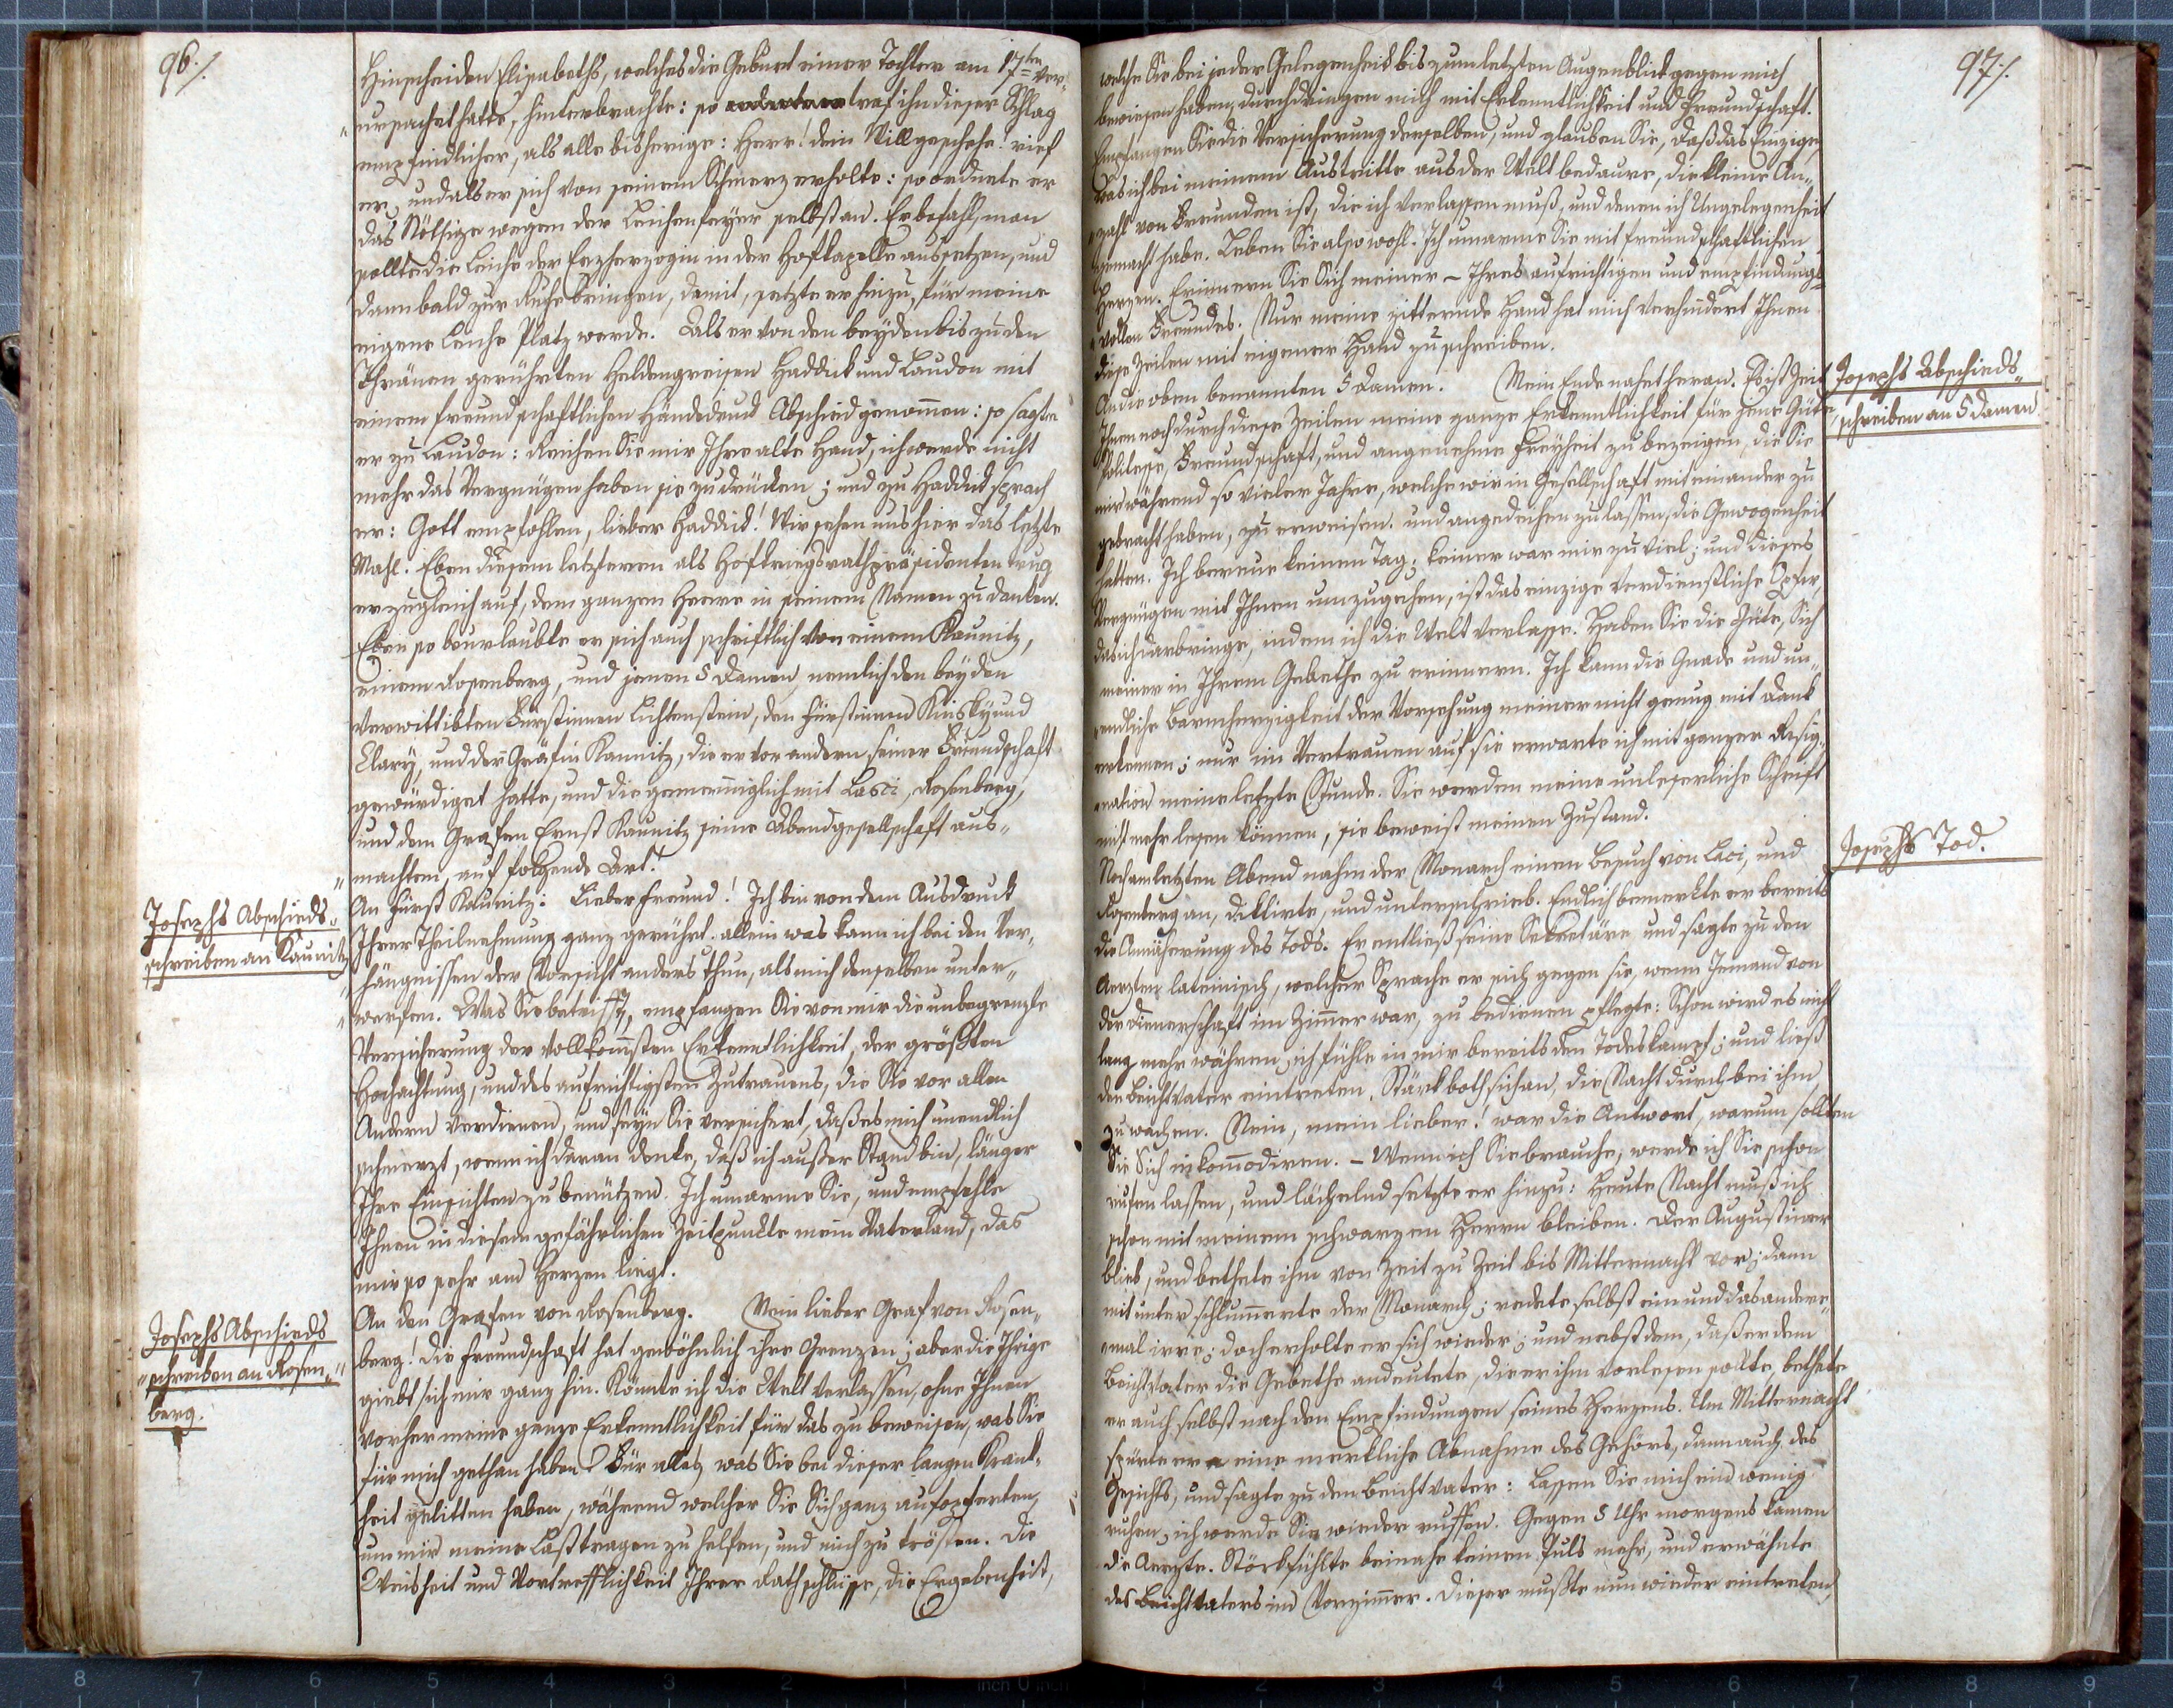 96./.
Hinscheiden Elisabeths, welches die Geburt einer Tochter am 17ten ver„
„ursachet hatte, hinterbrachte: so traf ihn dieser Schlag
empfindlicher, als alle bisherige: Herr! dein Will geschehe! rief
er, und als er sich von seinem Schmerz erholte: so ordnete er
das Nöthige wegen der Leichenfeyer selbst an. Er befahl, man
sollte die Leiche der Erzherzogin in der Hofkapelle aussetzen, und
dann bald zur Ruhe bringen, damit, setzte er hinzu, für meine
eigene Leiche Platz werde. Als er von den beyden bis zu den
Thränen gerührten Heldengreisen Haddick und Laudon mit
einem freundschaftlichen Händedruck Abschied genommen: so sagte
er zu Laudon: Reichen Sie mir Ihre alte Hand, ich werde nicht
mehr das Vergnügen haben sie zu drücken; und zu Haddick sprach
er: Gott empfohlen, lieber Haddick! Wir sehen uns hier das letzte
Mahl. Eben diesem letzteren als Hofkriegsrathspräsidenten trug
er zugleich auf, dem ganzen Heere in seinem Namen zu danken.
Eben so beurlaubte er sich auch schriftlich von einem Kaunitz,
einem Rosenberg, und jenen 5 Damen, nemlich den beyden
verwittibten Fürstinnen Lichtenstein, den Fürstinnen Kinsky und
Clary, und der Gräfin Kaunitz, die er vor andern seiner Freundschaft
gewürdiget hatte, und die gemeiniglich mit Lasci, Rosenberg,
und dem Grafen Ernst Kaunitz seine Abendgesellschaft aus„
„machten, auf folgende Art.
Josephs Abschieds„
„schreiben an Kaunitz
An Fürst Kaunitz. Lieber Freund! Ich bin von dem Ausdruck
Ihrer Theilnehmung ganz gerührt. allein was kann ich bei den Ver„
„hängnissen der Vorsicht anders thun, als mich denselben unter„
„werfen. Was Sie betrifft, empfangen Sie von mir die unbegrenzte
Versicherung der vollkommsten Erkenntlichkeit, der größten
Hochachtung, und des aufrichtigsten Zutrauens, die Sie vor allen
Andern verdienen, und seyn Sie versichert, daß es mich unendlich
schmerzt, wenn ich daran denke, daß ich außer Stand bin, länger
Ihre Einsichten zu benützen. Ich umarme Sie, und empfehle
Ihnen in diesem gefährlichen Zeitpunkte mein Vaterland, das
mir so sehr am Herzen liegt.
Josephs Abschieds
„schreiben an Rosen„
berg.
An den Grafen von Rosenberg. Mein lieber Graf von Rosen„
berg! die Freundschaft hat gewöhnlich ihre Grenzen; aber die Ihrige
giebt sich mir ganz hin. Könnte ich die Welt verlassen, ohne Ihnen
vorher meine ganze Erkenntlichkeit für das zu beweisen, was Sie
für mich gethan haben? Für alles, was Sie bei dieser langen Krank„
heit gelitten haben, während welcher Sie Sich ganz aufopferten,
um mir meine Last tragen zu helfen, und mich zu trösten. Die
Weisheit und Vortrefflichkeit Ihrer Rathschlüsse, die Ergebenheit,
97./.
welche Sie bei jeder Gelegenheit bis zum letzten Augenblick gegen mich
bewiesen haben, durchdringen mich mit Erkenntlichkeit und Freundschaft.
Empfangen Sie die Versicherung derselben, und glauben Sie, daß das Einzige,
das ich bei meinem Austritte aus der Welt bedaure, die kleine An„
„zahl von Freunden ist, die ich verlassen muß, und denen ich Ungelegenheit
gemacht habe. Leben Sie also wohl. Ich umarme Sie mit freundschaftlichen
Herzen. Erinnern Sie Sich meiner – Ihres aufrichtigen und empfindungs„
„vollen Freundes. Nur meine zitternde Hand hat mich verhindert Ihnen
diese Zeilen mit eigener Hand zu schreiben.
Josephs Abschieds„
„schreiben an 5 Damen
An die oben benannten 5 Damen. Mein Ende nahet heran. Es ist Zeit
Ihnen noch durch diese Zeilen meine ganze Erkenntlichkeit für jene Güte,
Politesse, Freundschaft, und angenehme Freyheit zu bezeigen, die Sie
mir während so vieler Jahre, welche wir in Gesellschaft mit einander zu
gebracht haben, zu erweisen. und angedeihen zu lassen, die Gewogenheit
hatten. Ich bereue keinen Tag; keiner war mir zu viel; und dieses
Vergnügen mit Ihnen umzugehen, ist das einzige verdienstliche Opfer,
das ich darbringe, indem ich die Welt verlasse. Haben Sie die Güte, Sich
meiner in Ihrem Gebethe zu erinnern. Ich kann die Gnade und un„
„endliche Barmherzigkeit der Vorsehung meiner nicht genug mit Dank
erkennen; nur im Vertrauen auf sie erwarte ich mit ganzer Resig„
„nation meine letzte Stunde. Sie werden meine unleserliche Schrift
nicht mehr lesen können, sie beweist meinen Zustand.
Josephs Tod.
Noch am letzten Abend nahm der Monarch einen Besuch von Laci, und
Rosenberg an, diktirte, und unterschrieb. Endlich bemerkte er bereits
die Annäherung des Tods. Er entließ seine Sekretäre und sagte zu den
Aerzten lateinisch, welcher Sprache er sich gegen sie, wenn Jemand von
der Dienerschaft im Zimmer war, zu bedienen pflegte: Schon wird es nicht
lang mehr währen, ich fühle in mir bereits den Todeskampf; und ließ
den Beichtvater eintreten. Störk both sich an, die Nacht durch bei ihm
zu wachen. Nein, mein lieber! war die Antwort, warum sollten
Sie Sich inkommodiren. – Wenn ich Sie brauche, werde ich Sie schon
rufen lassen, und lächelnd setzte er hinzu: Heute Nacht muß ich
schon mit meinem schwarzen Herrn bleiben. Der Augustiner
blieb, und bethete ihm von Zeit zu Zeit bis Mitternacht vor; dann
mit unter schlummerte der Monarch; redete selbst ein und das andere„
„mal irre; doch erholte er sich wieder; und nebst dem, daß er dem
Beichtvater die Gebethe andeutete, die er ihm vorlesen sollte, bethete
er auch selbst nach den Empfindungen seines Herzens. Um Mitternacht
spürte er eine merkliche Abnahme des Gehörs, dann auch des
Gesichts, und sagte zu dem Beichtvater: Lassen Sie mich ein wenig
ruhen, ich werde Sie wieder ruffen. Gegen 5 Uhr morgens kamen
die Aerzte. Störk fühlte beinahe keinen Puls mehr, und erwähnte
des Beichtvaters im Vorzimmer. Dieser mußte nun wieder eintreten,
8 7 6 5 4 3 2 1 inch 0 inch 1 2 3 4 5 6 7 8 9